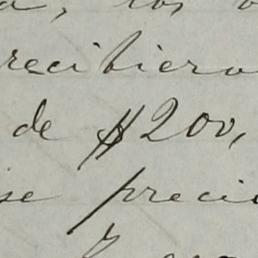 a, los
recibiero
de $200,
se preci